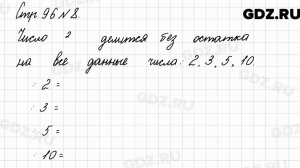 GDZ.RU
Стр. 96 N 8.
Число ? делится без остатка
на все данные числа: 2, 3, 5, 10
: 2 =
: 3 =
: 5 =
: 10 =